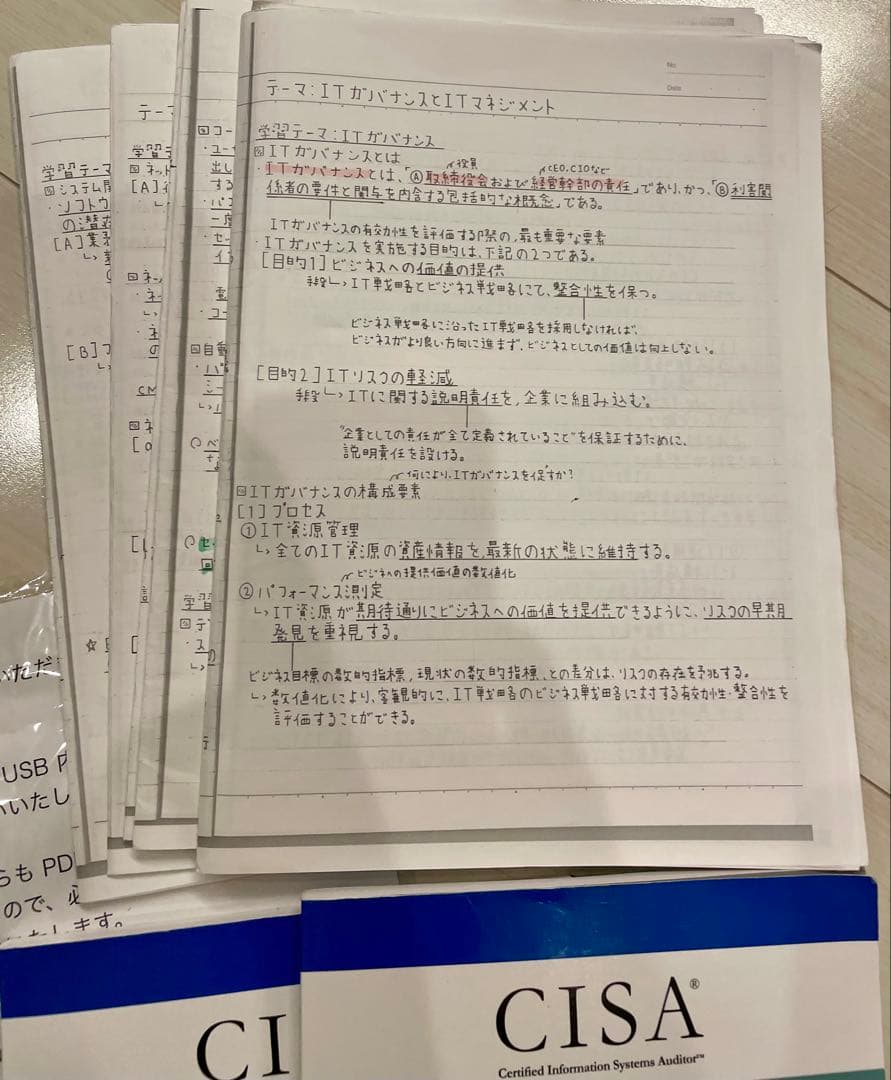 No.
Date
テーマ:ITガバナンスとITマネジメント
学習テーマ:ITガバナンス
ITガバナンスとは
役員
CEO、CIOなど
・ITガバナンスとは、「Ⓐ取締役会および経営幹部の責任」であり、かつ、「Ⓑ利害関
係者の要件と関与を内含する包括的な概念」である。
ITガバナンスの有効性を評価する際の、最も重要な要素
・ITガバナンスを実施する目的は、下記の2つである。
[目的1]ビジネスへの価値の提供
手段↳IT戦略とビジネス戦略にて、整合性を保つ。
ビジネス戦略に沿ったIT戦略を採用しなければ、
ビジネスがより良い方向に進まず、ビジネスとしての価値は向上しない。
[目的2]ITリスクの軽減
手段↳ITに関する説明責任を、企業に組み込む。
"企業としての責任が全て定義されていること"を保証するために、
説明責任を設ける。
何により、ITガバナンスを促すか?
ITガバナンスの構成要素
[1]プロセス
①IT資源管理
↳全てのIT資源の資産情報を、最新の状態に維持する。
ビジネスへの提供価値の数値化
②パフォーマンス測定
↳IT資源が期待通りにビジネスへの価値を提供できるように、リスクの早期
発見を重視する。
ビジネス目標の数的指標、現状の数的指標、との差分は、リスクの存在を予兆する。
↳数値化により、客観的に、IT戦略のビジネス戦略に対する有効性・整合性を
評価することができる。
学習テーマ
システム開
・ソフトウ
の潜在
[A]業務
[B]
テーマ
学習テ
ネット
[A]
CM
コー
・ユー
出し
する
二度
自動
学習
USB P
いいたし
らも PD
ので、必
たします。
CI
CISA®
Certified Information Systems Auditor™